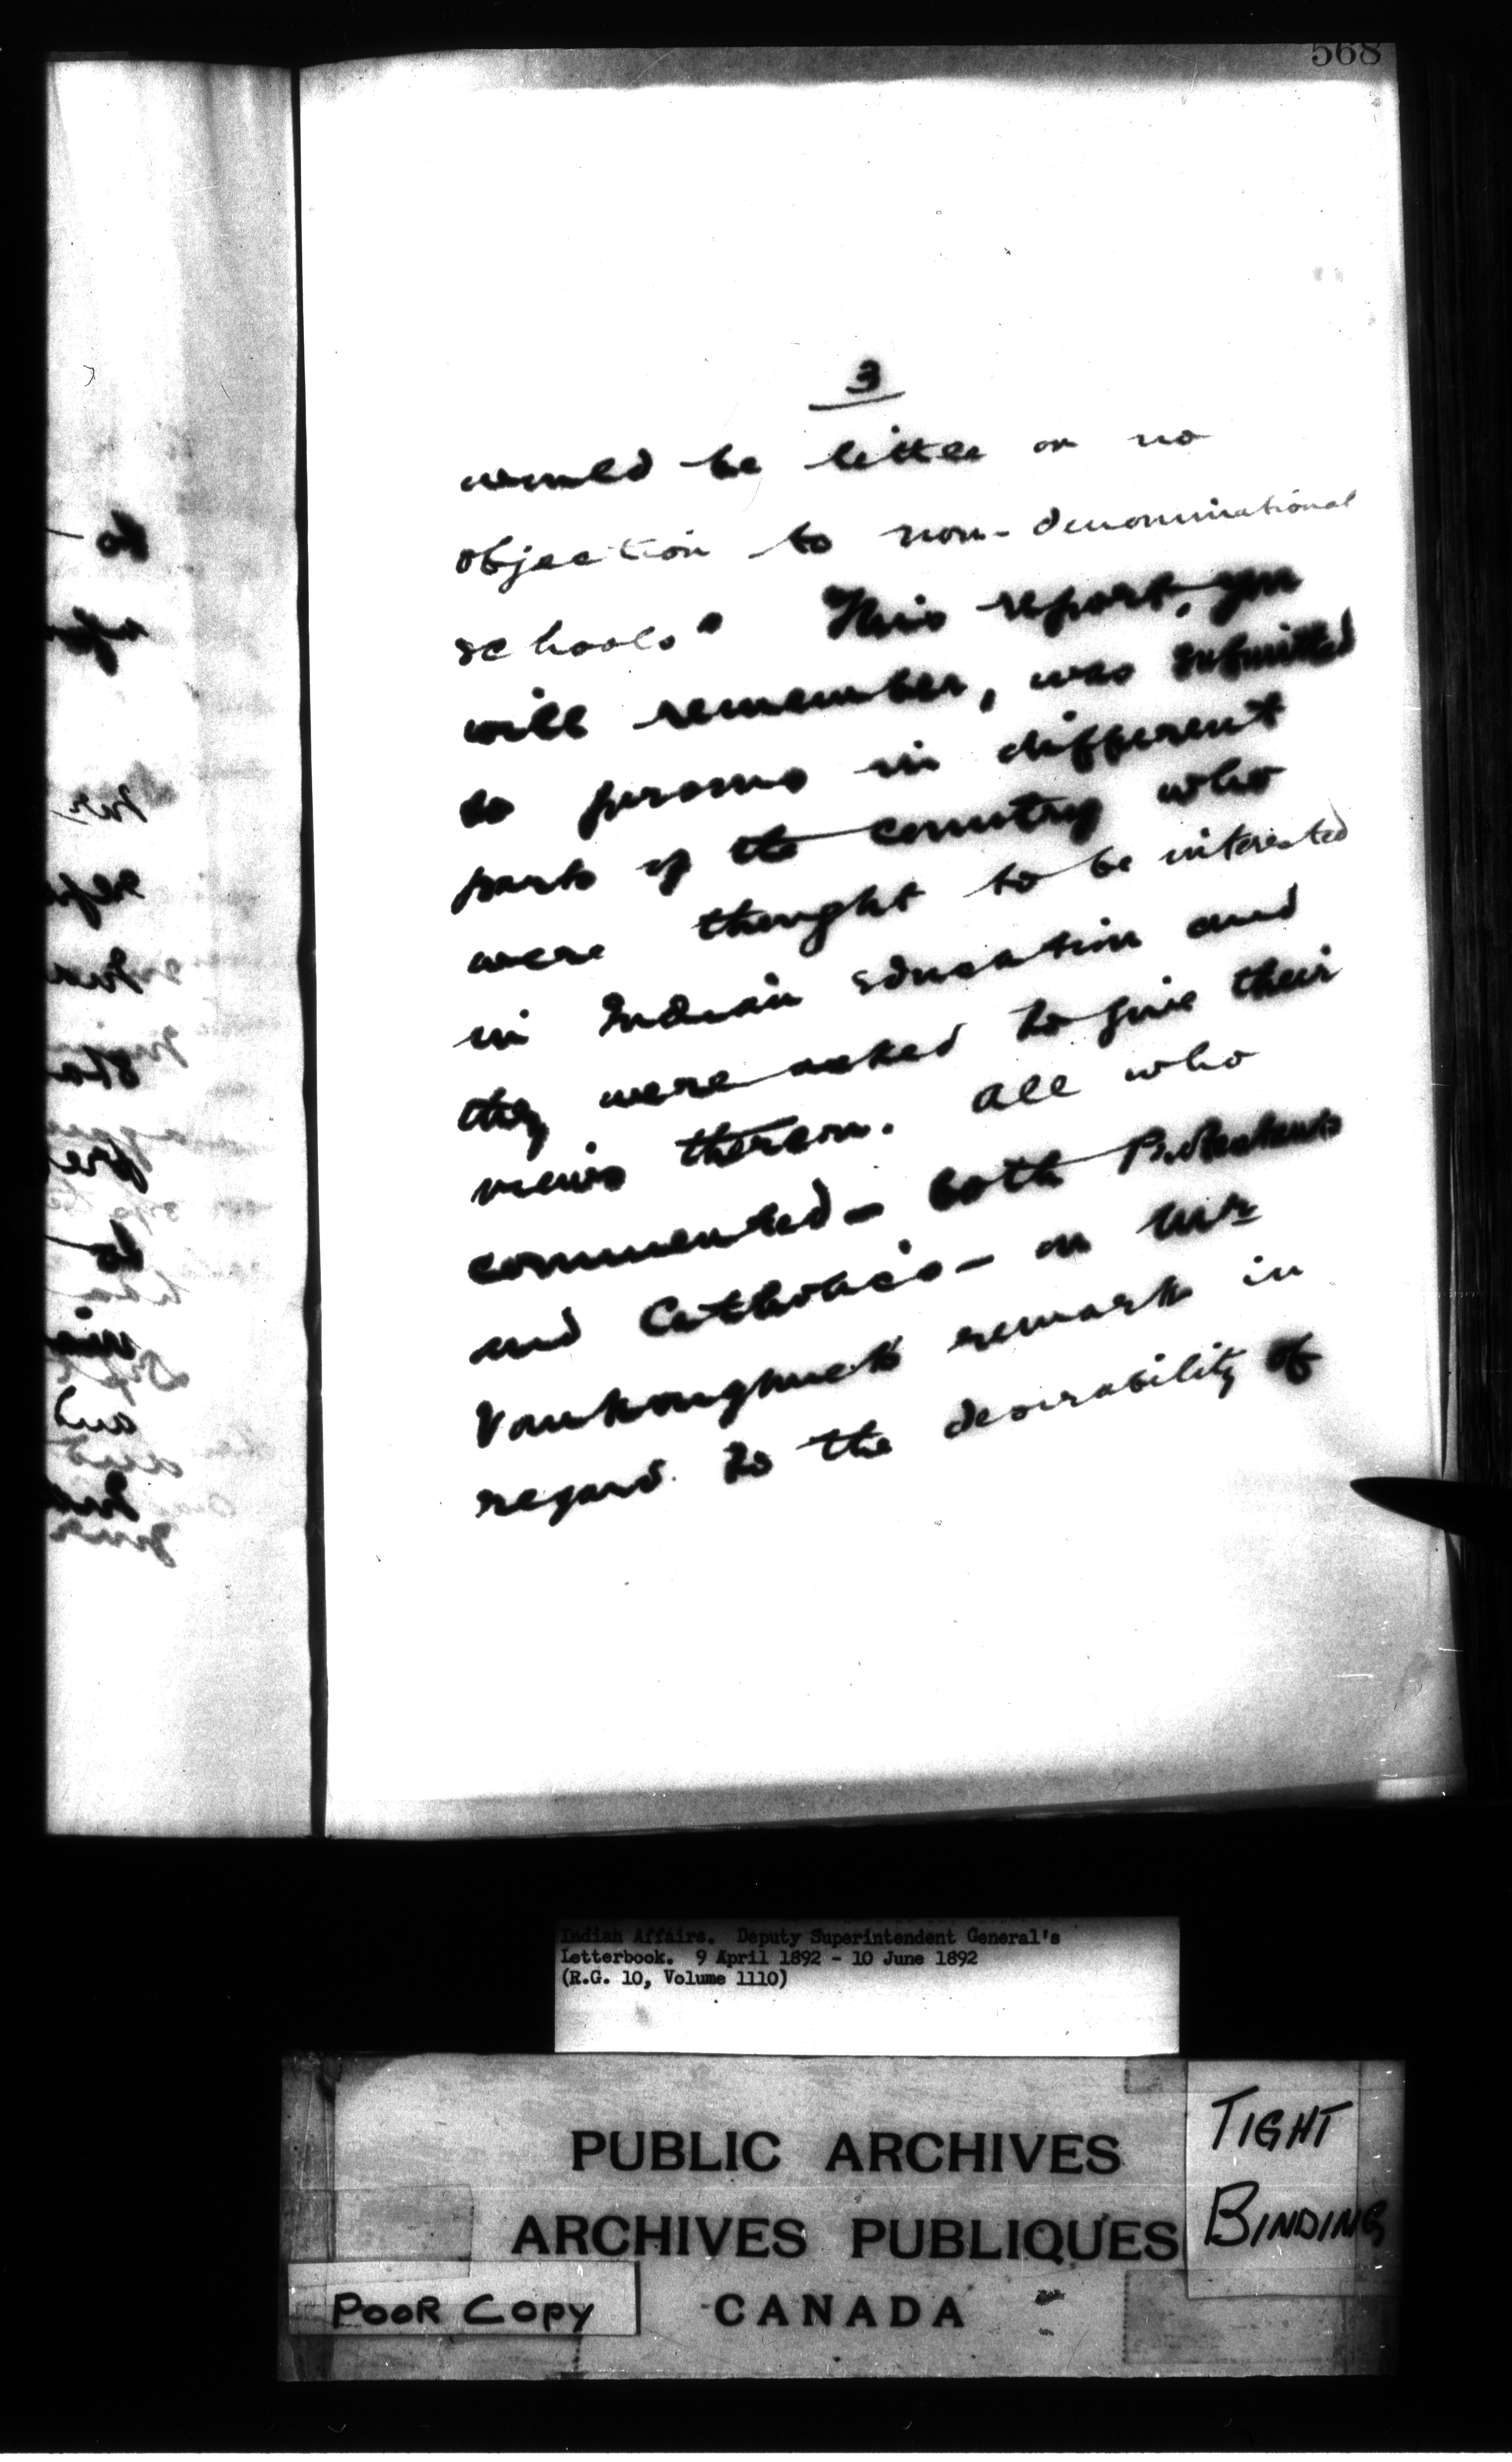 568
3
would be little or no
objection to non-denominational
schools" This report, you
will remember, was submitted
to persons in different
parts of the country who
were thought to be interested
in Indian education and
they were asked to give their
views thereon. All who
commented - both Protestants
and Catholics - on Mr
Vankoughnet's remark in
regard to the desirability of
Indian Affairs. Deputy Superintendent General's
Letterbook. 9 April 1892 - 10 June 1892
(R.G. 10, Volume 1110)
PUBLIC ARCHIVES
ARCHIVES PUBLIQUES
CANADA
TIGHT
BINDING
POOR COPY